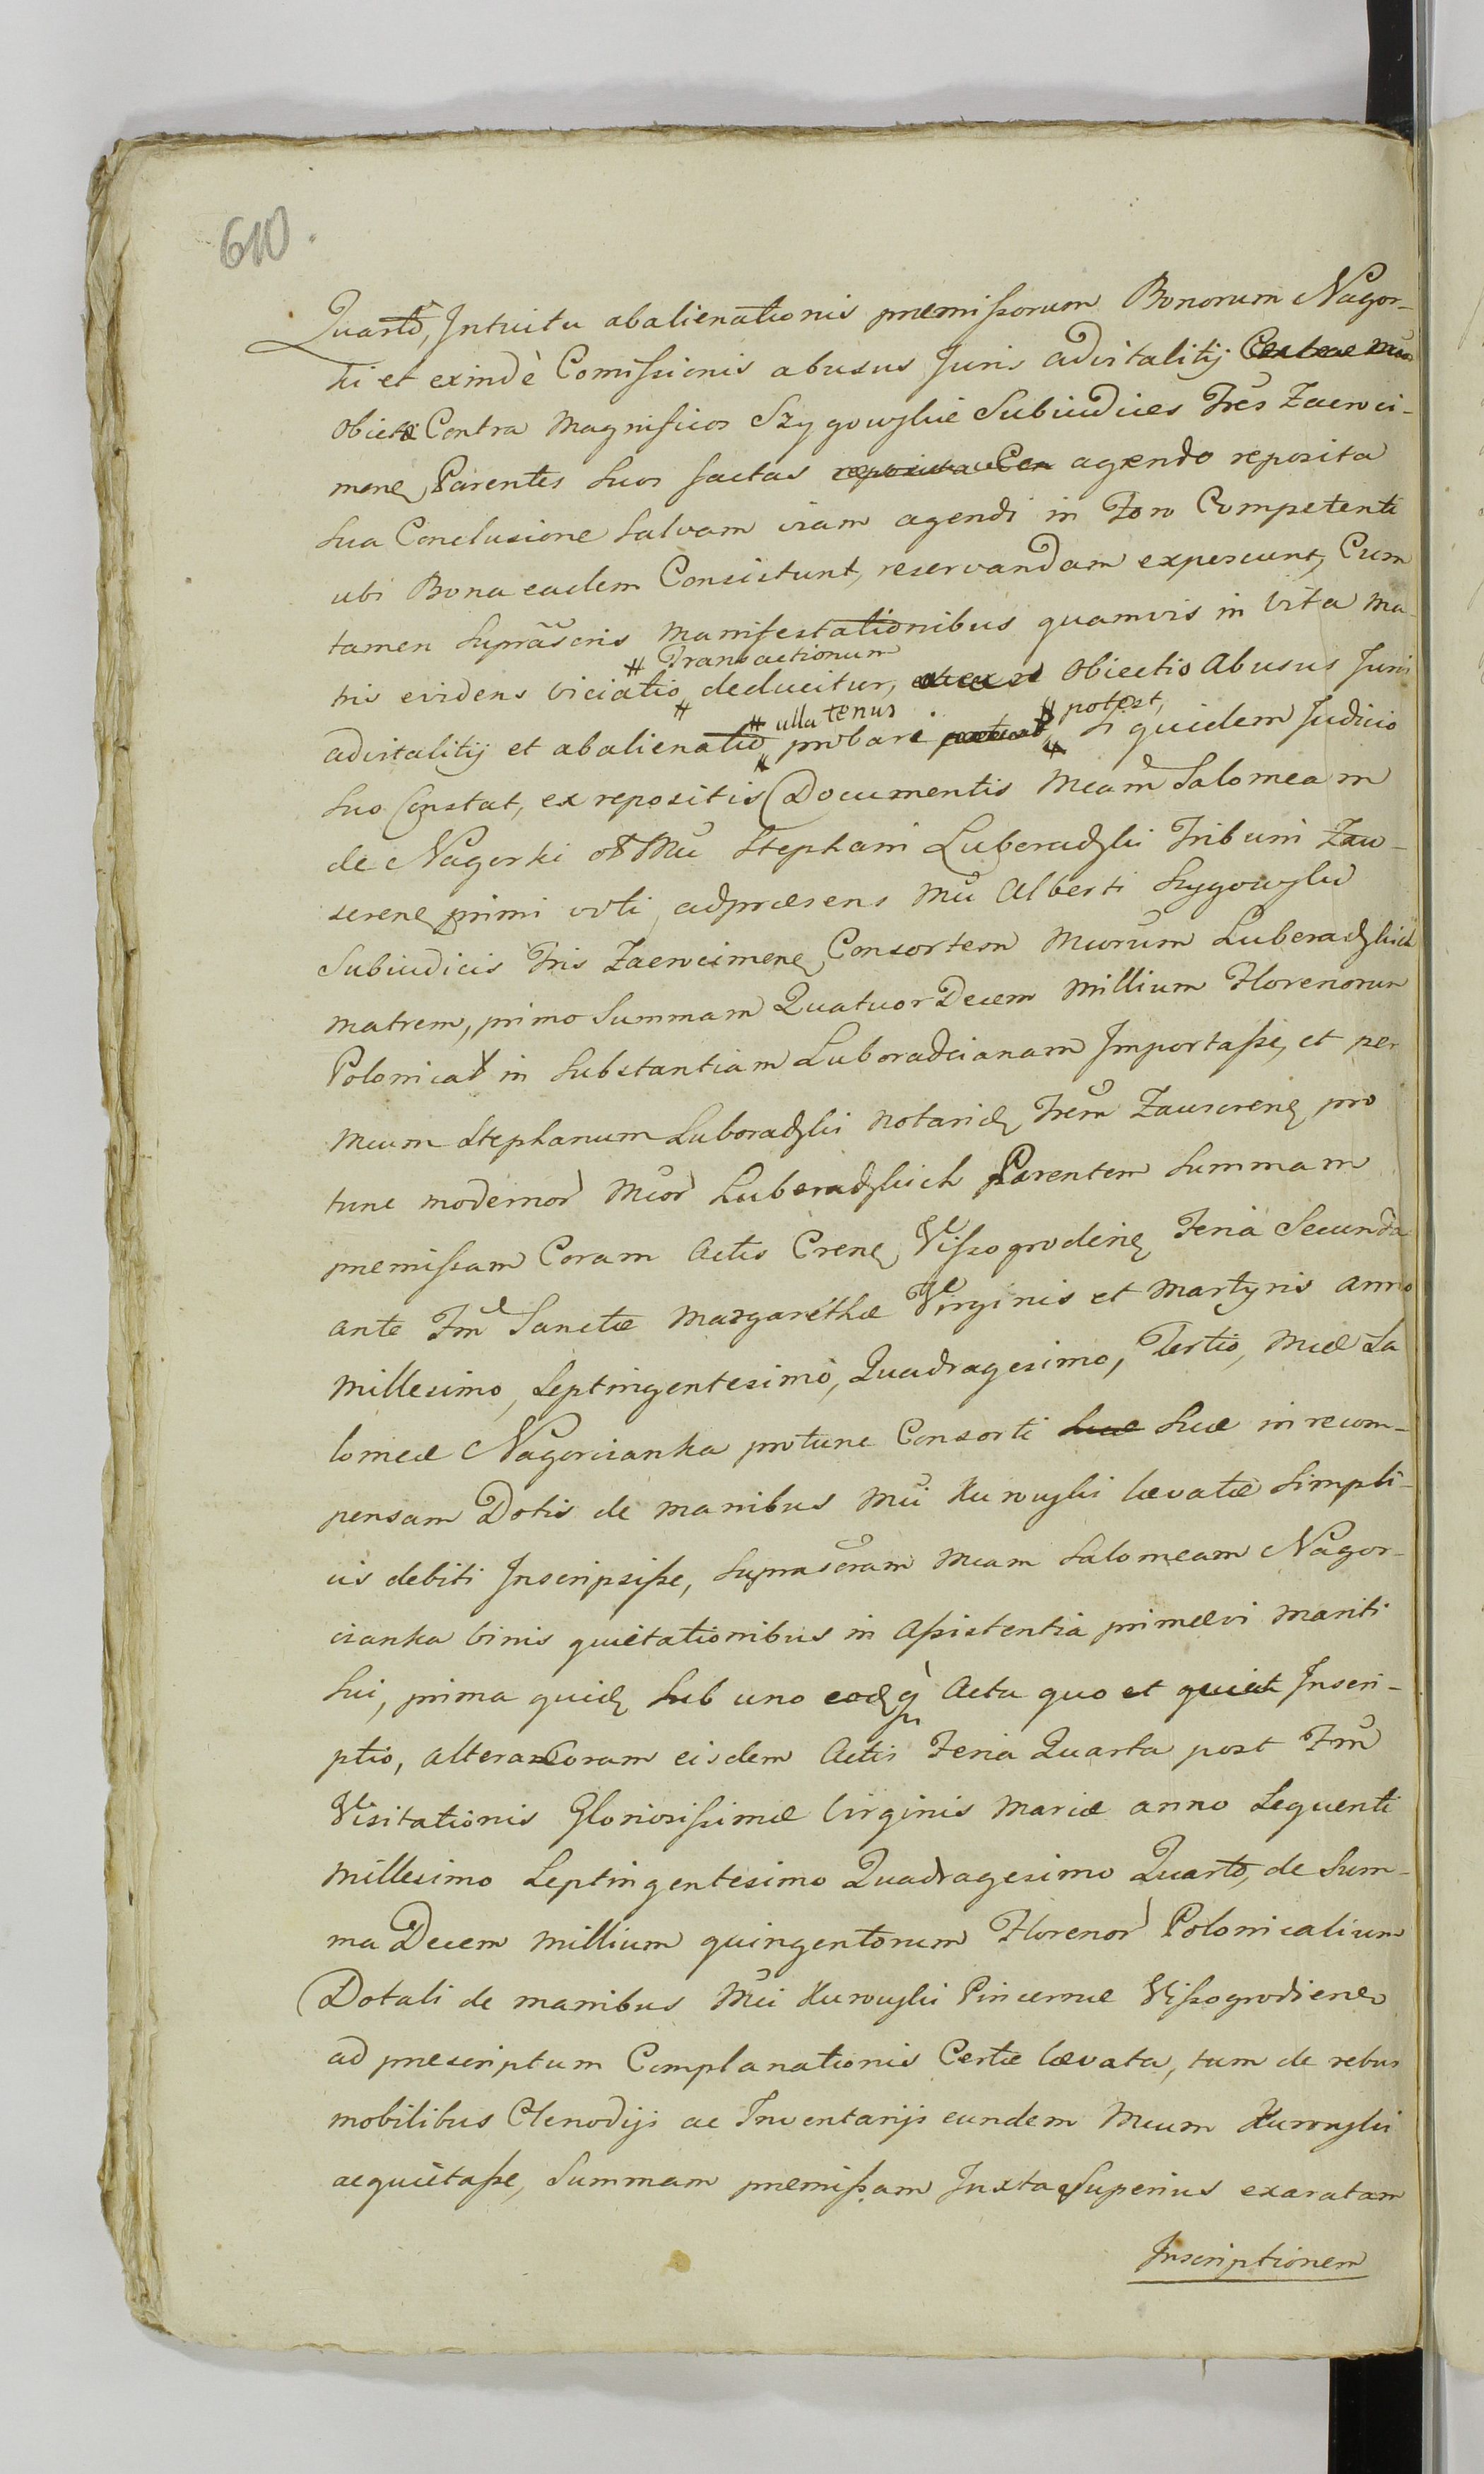 610.
Quartò, Intuitu abalienationis præmissorum Bonorum Nagor-
ki et exindè Comissionis abusus Juris advitalitij
obiectæ Contra Magnificos Szygowskie Subiudices Tres Zacroci-
menę, Parentes suos factas agendo reposita
sua Conclusione salvam viam agendi in Foro Competenti
ubi Bona eadem Consistunt, reservandam exposcunt, Cum
tamen suprãscris Manifestationibus quamvis in vita ma-
# Transactionum
tris evidens viciatio # deducitur, obiectio Abusus Juris
# ulla tenus # potest,
advitalitij et abalienatio # probari # si quidem Judicio
suo Constat, ex repositis Documentis Mcam Salomeam
de Nagorki Mci Stephani Luboradzki Tribuni Zaw-
serenę primi voti, adpræsens Mci Alberti Szygowski
Subiudicis Tris Zacrocimenę Consortem Mcorum Luboradzkich
matrem, primo Summam Quatuor Decem Millium Florenorum
Polonical in Substantiam Luboradcianam Importasse, et per
Mcum Stephanum Luboradzki Notarię Trem Zawscrenę pro
tunc modernor Mcor Luboradzkich Parentem Summam
præmissam Coram Actis Crenę Vissogrodienę Feria Secunda
ante Fm Sanctæ Margarethæ Virginis et Martyris anno
Millesimo, Septingentesimo, Quadragesimo, Tertio, Mcæ Sa
lomeæ Nagorcianka protunc Consorti suæ suæ in recom-
pensam Dotis de manibus Mci Kurowski lævatæ simpli-
cis debiti Inscripsisse, supra scram Mcam Salomeam Nagor-
cianka binis quietationibus in Assistentia primævi Mariti
sui, prima quidę sub uno eodę Actu quo et Inscri-
ptio, altera Coram eisdem Actis Feria Quarta post Fm
Visitationis Gloriosissimæ Virginis Mariæ anno sequenti
Millesimo Septingentesimo Quadragesimo Quarto, de Sum-
ma Decem Millium quingentorum Florenor Polonicalium
Dotali de manibus Mci Kurowski Pincernæ Vissogrodienę
ad præscriptum Complanationis Certæ lævata, tum de rebus
mobilibus Clenodijs ac Inventarijs eundem Mcum Kurowski
acquietasse, Summam præmissam Juxta superius exaratam
Inscriptionem